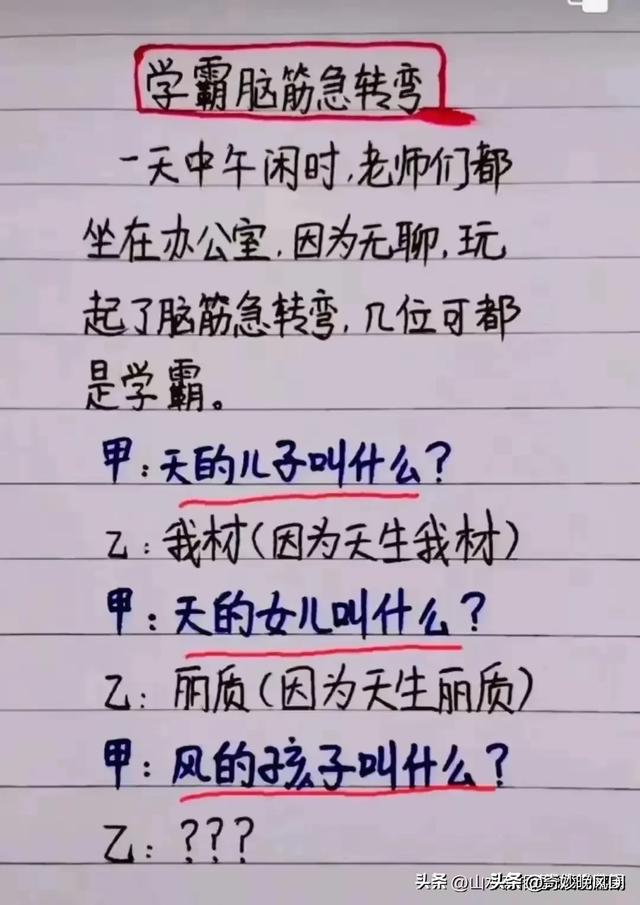 学霸脑筋急转弯
一天中午闲时,老师们都
坐在办公室,因为无聊,玩
起了脑筋急转弯,几位可都
是学霸。
甲:天的儿子叫什么?
乙:我材(因为天生我材)
甲:天的女儿叫什么?
乙:丽质(因为天生丽质)
甲:风的孩子叫什么?
乙:???
头条 @山
头条 @奇妙晚风